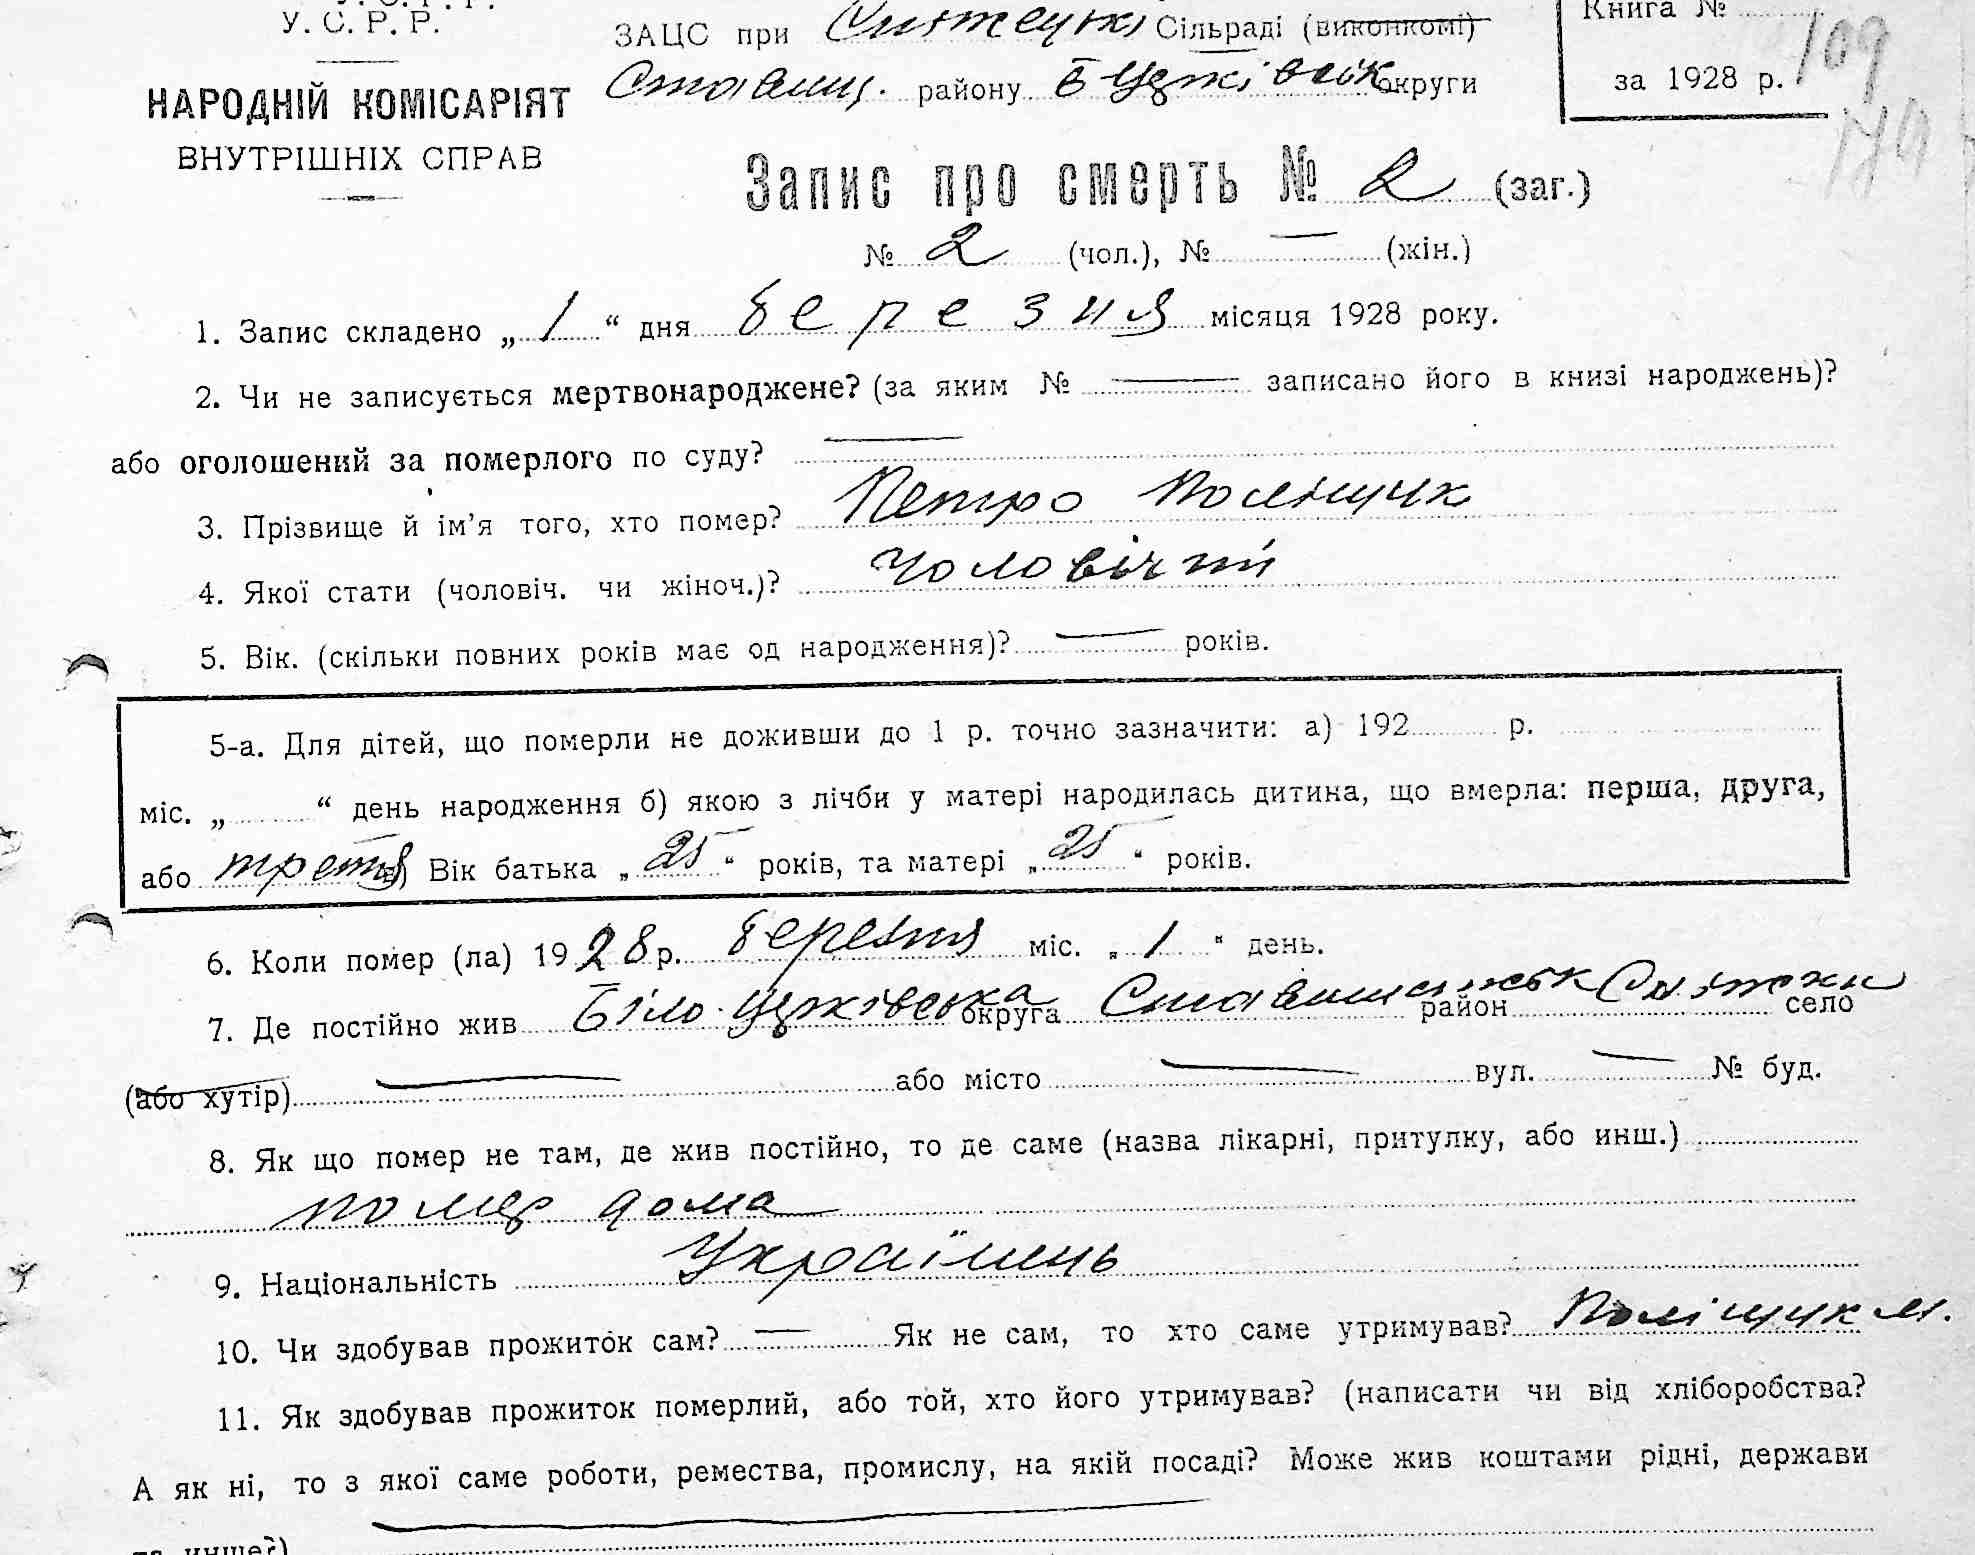 У. С. Р. Р.
НАРОДНІЙ КОМІСАРІЯТ
ВНУТРІШНІХ СПРАВ
ЗАЦС при Снятецькі Сільраді (виконкомі)
Ставищ. району Б Церківськ округи
Книга №
за 1928 р.
109
Запис про смерть № 2 (заг.)
№ 2 (чол.), № — (жін.)
1. Запис складено „ 1 “ дня березня місяця 1928 року.
2. Чи не записується мертвонароджене? (за яким № — записано його в книзі народжень)?
або оголошений за померлого по суду? —
3. Прізвище й ім’я того, хто помер? Петро Поліщук
4. Якої стати (чоловіч. чи жіноч.)? чоловічий
5. Вік. (скільки повних років має од народження)? — років.
5-а. Для дітей, що померли не доживши до 1 р. точно зазначити: а) 192 р.
міс. „ “ день народження б) якою з лічби у матері народилась дитина, що вмерла: перша, друга,
або третя) Вік батька „ 25 “ років, та матері „ 25 “ років.
6. Коли помер (ла) 1928 р. березня міс. „ 1 “ день.
7. Де постійно жив Біло-Церківська округа Ставищанськ район Снітки село
(або хутір) — або місто — вул. — № буд.
8. Як що помер не там, де жив постійно, то де саме (назва лікарні, притулку, або инш.)
помер дома
9. Національність Українець
10. Чи здобував прожиток сам? — Як не сам, то хто саме утримував? Поліщук М.
11. Як здобував прожиток померлий, або той, хто його утримував? (написати чи від хліборобства?
А як ні, то з якої саме роботи, ремества, промислу, на якій посаді? Може жив коштами рідні, держави
та инше?) —